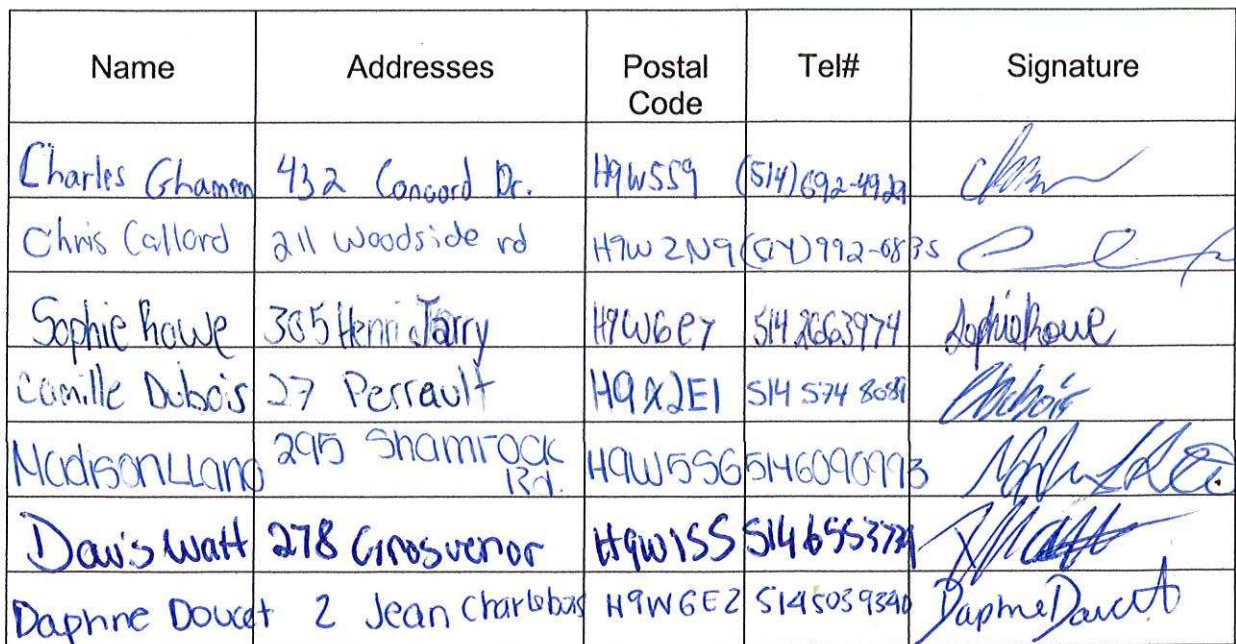 Name Addresses Postal Code Tel# Signature
Charles Ghamen 432 Concord Dr. H9W5S9 (514)692-4929
Chris Callard 211 Woodside rd H9W 2N9 (514)992-0835
Sophie Rowe 305 Henri Jarry H9W6E7 514 2663974 Sophie Rowe
Camille Dubois 27 Perrault H9X2E1 514 574 8089
Madison Llano 295 Shamrock Rd. H9W5S6 5146090993
Davis Watt 278 Grosvenor H9W1S5 5146553739
Daphne Doucet 2 Jean Charlebois H9W6E2 5145039340 Daphne Doucet